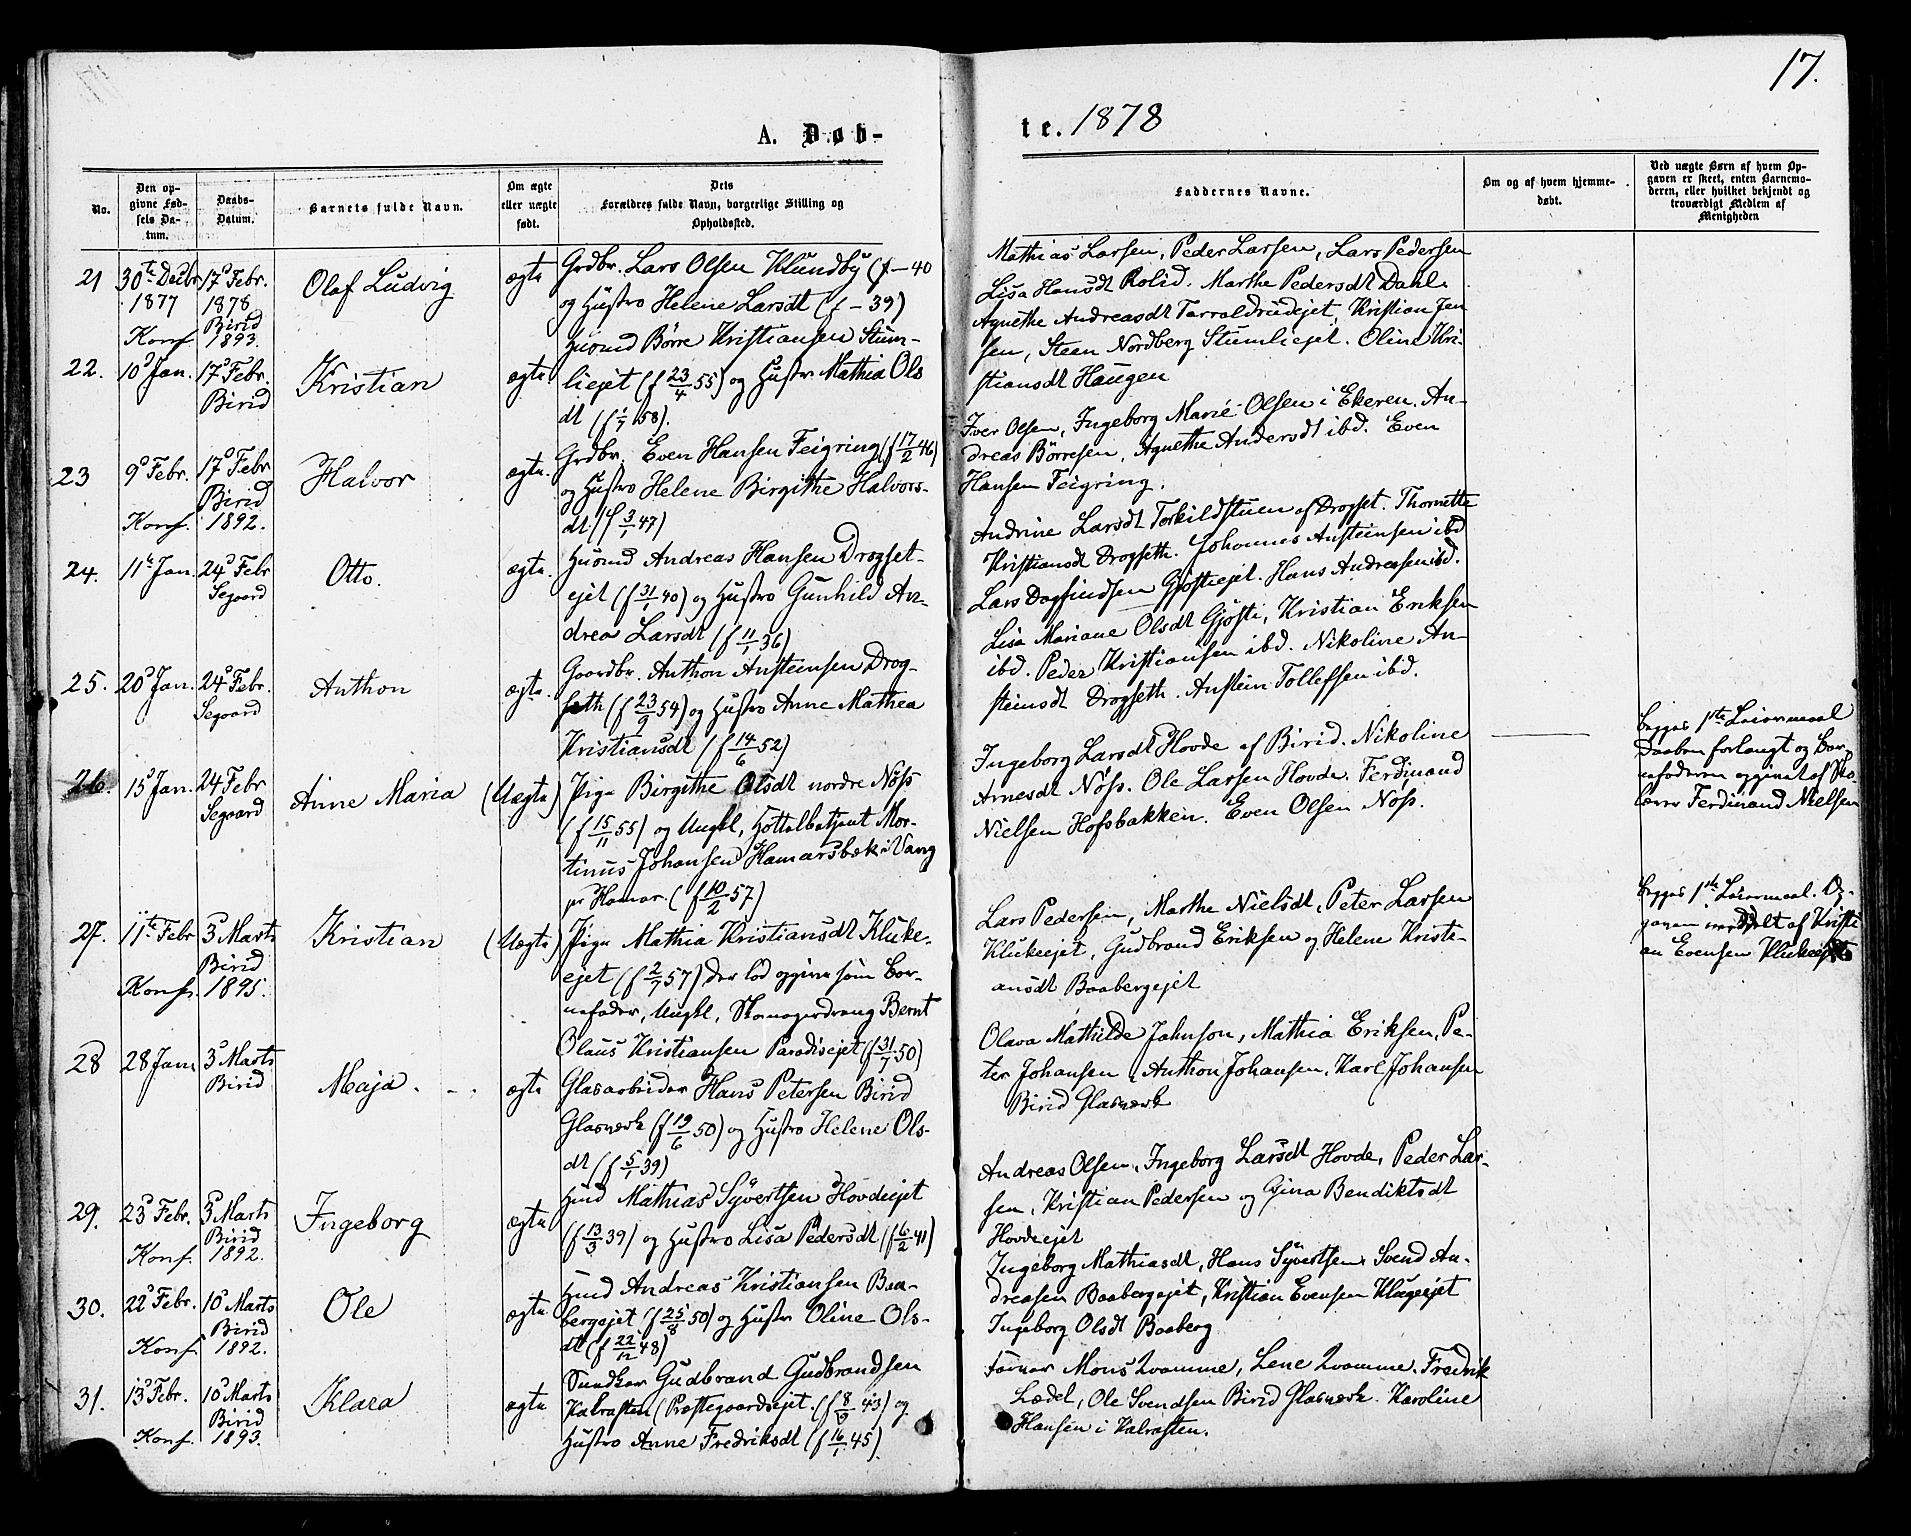 17.
A. Døb-
te. 1878
No.
Den op-
givne Fød-
sels Da-
tum.
Daabs-
Datum.
Barnets fulde Navn.
Om ægte
eller uægte
født.
Dets
Forældres fulde Navn, borgerlige Stilling og
Opholdssted.
Faddernes Navne.
Om og af hvem hjemme-
døbt.
Ved uægte Børn af hvem Op-
gaven er skeet, enten Barnemo-
deren, eller hvilket bekjendt og
troværdigt Medlem af
Menigheden
21
30te Decbr
1877
Konf.
17d Febr.
1878
Birid
1893.
Olaf Ludvig
ægte
Grdbr. Lars Olsen Klundby (f - 40
og Hustro Helene Larsdt (f - 39)
Mathias Larsen, Peder Larsen, Lars Pedersen
Lisa Hansdt Rolid. Marthe Pedersdt Dahl.
22.
10d Jan.
17d Febr.
Birid
Kristian
ægte
Husmd Børre Kristiansen Stum-
liejet (f 23/4 55) og Hustr Mathia Ols
dt (f 1/7 58).
Agnethe Andreasdt Tarraldrudejet, Kristian Jen
sen, Steen Nordberg Stumliejet. Oline Kri-
stiansdt Haugen
23
9d Febr.
Konf.
17d Febr
Birid
1892.
Halvor
ægte.
Grdbr. Even Hansen Feigring (f 17/2 46)
og Hustro Helene Birgithe Halvors-
dt. (f 3/1 47)
Iver Olsen, Ingeborg Marie Olsen i Ekeren. An-
dreas Børresen, Agnethe Andersdt ibd. Even
Hansen Feigring.
24.
11te Jan.
24d Febr
Segaard
Otto.
ægte.
Husmd Andreas Hansen Drogset-
ejet (f 31/1 40) og Hustro Gunhild An-
drea Larsdt (f 11/1 36)
Andrine Larsdt Torkildstuen af Drogset. Thornette
Kristiansdt Drogseth. Johannes Ansteinsen ibd
Lars Dagfindsen Gjøstiejet. Hans Andreasen ibd.
25.
20d Jan.
24d Febr.
Segaard
Anthon
ægte.
Gaardbr. Anthon Ansteinsen Drog-
seth (f 23/9 54) og Hustro Anne Mathea
Kristiansdt (f 14/6 52)
Lisa Mariane Olsdt Gjøsti, Kristian Eriksen
ibd. Peder Kristiansen ibd. Nikoline An-
steinsdt Drogseth. Anstein Tollefsen ibd.
26.
15d Jan.
24 Febr
Segaard
Anne Maria
(Uægte)
Pige Birgithe Olsdt nordre Nøss
(f 15/11 55) og Ungkl, Hottelbetjent Mar-
tinus Johansen Hamarsbæk i Vang
pr Hamar (f 10/2 57)
Ingeborg Larsdt Hovde af Birid. Nikoline
Arnesdt Nøss. Ole Larsen Hovde. Ferdinand
Nielsen Hofsbakken. Even Olsen Nøss.
Begges 1ste Leiermaal
Daaben forlangt og Bar-
nefaderen opgivet af Sko-
lærer Ferdinand Nielsen
27.
11te Febr
Konf.
3d Marts
Birid
1895.
Kristian
(Uægte)
Pige Mathia Kristiansdt Kluke-
ejet (f 2/7 57) der lod opgive som Bar-
nefader, Ungkl, Skomagerdreng Bernt
Olaus Kristiansen Paradisejet (f 31/7 50)
Lars Pedersen, Marthe Nielsdt, Peter Larsen
Klukeejet, Gudbrand Eriksen og Helene Kristi-
ansdt Baabergejet
Begges 1ste Leiermaal. Op-
gaven meddelt af Kristi
an Evensen Klukeejet
28
28 Jan.
3d Marts
Birid
Maja.
ægte
Glasarbeider Hans Petersen Birid
Glasværk (f 19/6 50) og Hustro Helene Ols-
dt (f 5/1 39)
Olava Mathilde Jahnson, Mathia Eriksen, Pe-
ter Johansen, Anthon Johansen, Karl Johansen
Birid Glasværk
29.
23d Febr.
Konf.
3d Marts
Birid
1892.
Ingeborg
ægte
Husmd Mathias Syvertsen Hovdeejet
(f 13/3 39) og Hustro Lisa Pedersdt (f 6/2 41)
Andreas Olsen, Ingeborg Larsdt Hovde, Peder Lar-
sen, Kristian Pedersen og Gina Bendiktsdt
Hovdeejet
30.
22d Febr.
Konf.
10d Marts
Birid
1892.
Ole
ægte
Husmd Andreas Kristiansen Baa-
bergejet (f 25/8 50) og Hustr Oline Ols-
dt (f 22/12 48)
Ingeborg Mathiasdt, Hans Syvertsen. Svend An-
dreasen Baabergejet, Kristian Evensen Klugeejet
Ingeborg Olsdt Baaberg
31.
13d Febr.
Konf.
10d Marts
Birid
1893.
Klara
ægte
Snedker Gudbrand Gudbrandsen
Kalrasten (Præstegaardsejet. (f 8/9 43) og
Hustro Anne Fredriksdt (f 16/1 45).
Farver Mons Kvamme, Lene Kvamme. Fredrik
Lædel, Ole Svendsen Birid Glasværk. Karoline
Hansen i Kalrasten.